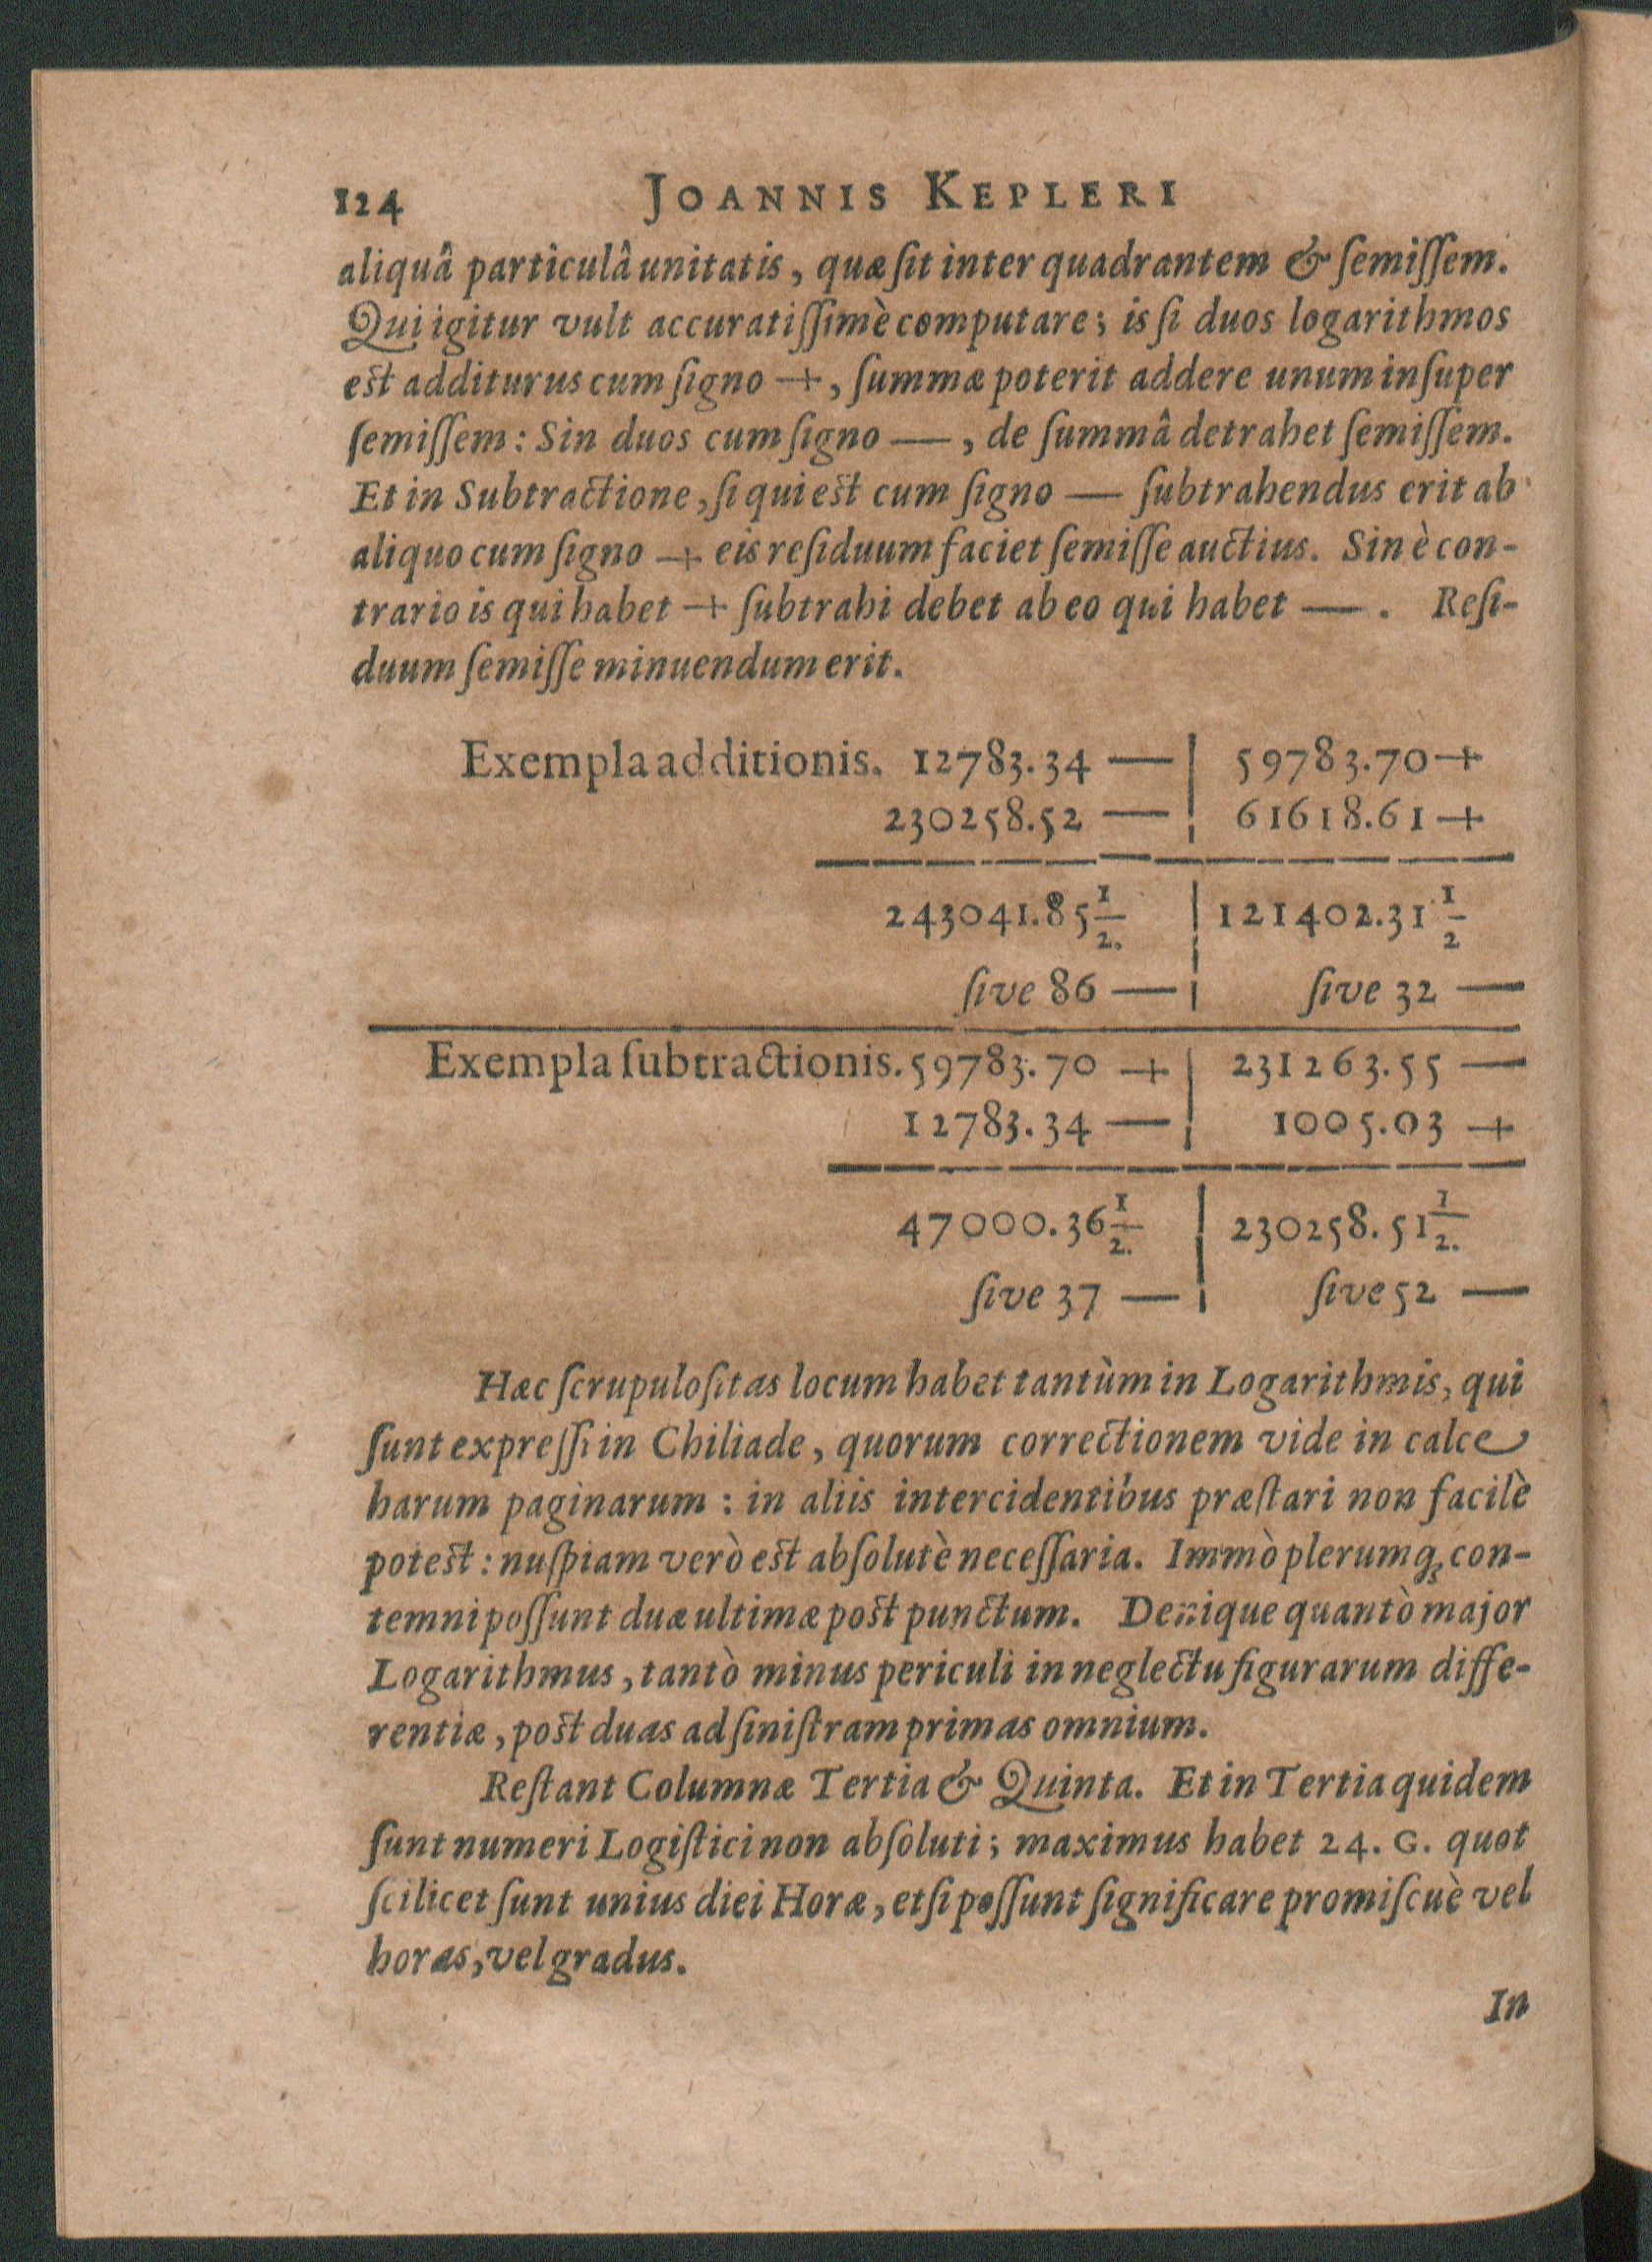 124 JOANNIS KEPLERI
aliquâ particulâ unitatis, quæ ſit inter quadrantem & ſemiſſem.
Qui igitur vult accuratiſſimè computare; is ſi duos logarithmos
eſt additurus cum ſigno +, ſummæ poterit addere unum inſuper
ſemiſſem: Sin duos cum ſigno —, de ſummâ detrahet ſemiſſem.
Et in Subtractione, ſi qui eſt cum ſigno — ſubtrahendus erit ab
aliquo cum ſigno + eis reſiduum faciet ſemiſſe auctius. Sin è con-
trario is qui habet + ſubtrahi debet ab eo qui habet —. Reſi-
duum ſemiſſe minuendum erit.
Exempla additionis. 12783.34 — | 59783.70 +
230258.52 — | 61618.61 +
243041.85 1/2. | 121402.31 1/2
ſive 86 — | ſive 32 —
Exempla ſubtractionis. 59783.70 + | 231263.55 —
12783.34 — | 1005.03 +
47000.36 1/2. | 230258.51 1/2.
ſive 37 — | ſive 52 —
Hæc ſcrupuloſitas locum habet tantùm in Logarithmis, qui
ſunt expreſſi in Chiliade, quorum correctionem vide in calce
harum paginarum: in aliis intercidentibus præſtari non facilè
poteſt: nuſpiam verò eſt abſolutè neceſſaria. Immò plerumq; con-
temni poſſunt duæ ultimæ poſt punctum. Denique quantò major
Logarithmus, tantò minus periculi in neglectu figurarum diffe-
rentiæ, poſt duas ad ſiniſtram primas omnium.
Reſtant Columnæ Tertia & Quinta. Et in Tertia quidem
ſunt numeri Logiſtici non abſoluti; maximus habet 24. G. quot
ſcilicet ſunt unius diei Horæ, etſi poſſunt ſignificare promiſcuè vel
horas, vel gradus.
In